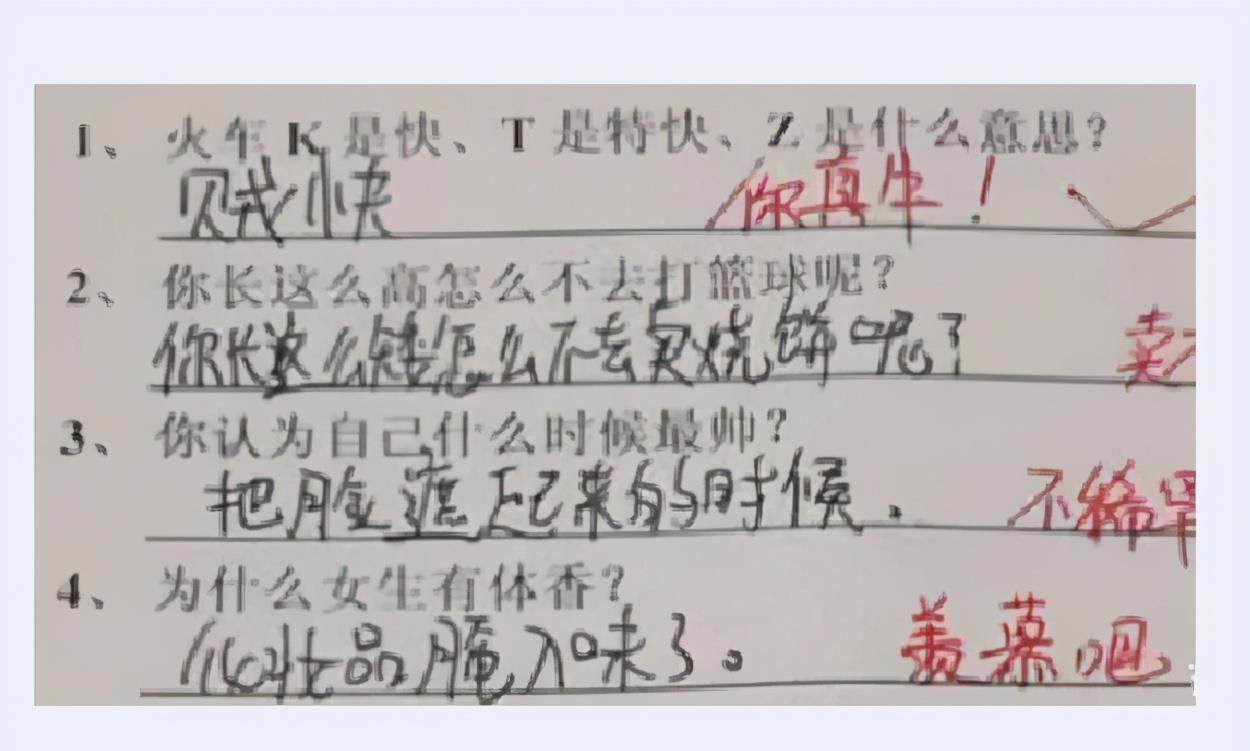 1、 火车 K 是快、T 是特快、Z 是什么意思?
贼快 你真牛!
2、 你长这么高怎么不去打篮球呢?
你长这么矮怎么不去卖烧饼呢? 卖
3、 你认为自己什么时候最帅?
把脸遮起来的时候. 不稀罕
4、 为什么女生有体香?
化妆品腌入味了。 羡慕吧